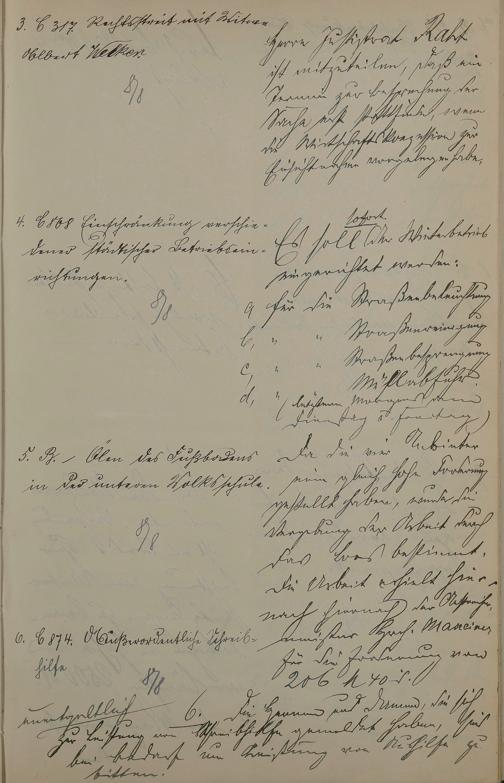 3. C 317. Rechtsstreit mit Witwe
Olbert Welker
8/8
Herrn Justizrat Raht
ist mitzuteilen, daß ein
Termin zur Besprechung der
Sache erst stattfinde, wenn
die Wirtschaftskonzession zur
Einsichtnahme vorgelegen habe.
4. C 808 Einschränkung verschie-
dener städtischer Betriebsein-
richtungen.
8/8
sofort
Es soll der Winterbetrieb
eingerichtet werden:
a für die Straßenbeleuchtung
b, " " Straßenreinigung
c, " " Straßenbesprengung
d, " Müllabfuhr
(letztere Morgens dann
Dienstag u. Freitag)
5. B. / Ölen des Fußbodens
in der unteren Volksschule.
8/8
Da die vier Anbieter
eine gleich hohe Forderung
gestellt haben, wurde die
Vergebung der Arbeit durch
das Loos bestimmt.
Die Arbeit erhielt hier-
nach hiernach der
Mancini
für die Forderung von
206 M 40 d.
6. C 874. Außerordentliche Schreib-
hilfe
8/8
unentgeltlich
6. Die Herren und Damen, die sich
zur Leistung von Schreibhilfe gemeldet haben, sind
bei Bedarf um Leistung von Aushilfe zu
bitten.